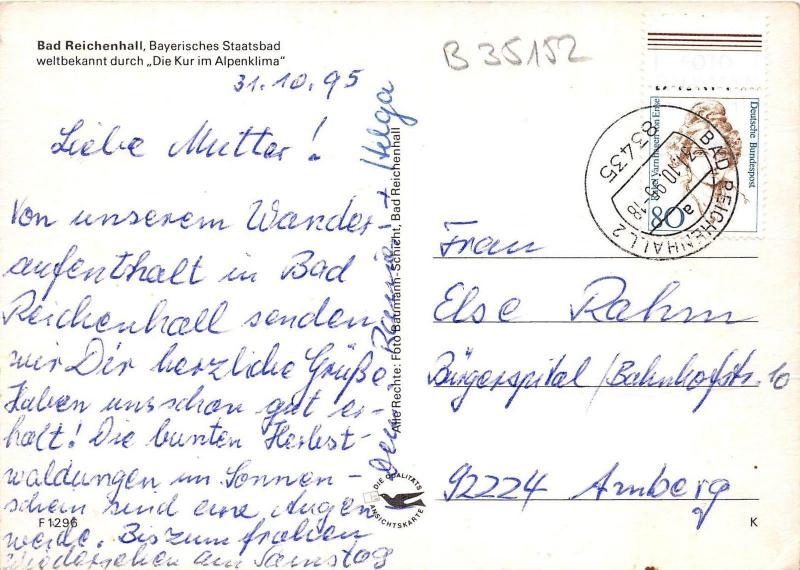 Bad Reichenhall, Bayerisches Staatsbad
weltbekannt durch „Die Kur im Alpenklima“
31.10.95
Liebe Mutter!
Von unserem Wander-
aufenthalt in Bad
Reichenhall senden
wir Dir herzliche Grüße.
Haben uns schon gut er-
holt! Die bunten Herbst-
waldungen im Sonnen-
schein sind eine Augen
weide. Bis zum frohen
Wiedersehen am Samstag
+ Helga
Alle Rechte: Foto Baumann-Schicht, Bad Reichenhall
F 1296
DIE QUALITÄTS
ANSICHTSKARTE
B 35152
Deutsche Bundespost
Rahel Varnhagen von Ense
80
83435
BAD REICHENHALL 2
31.10.95-18
a
Frau
Else Rahm
Bürgerspital/Bahnhofstr. 10
92224 Amberg
K